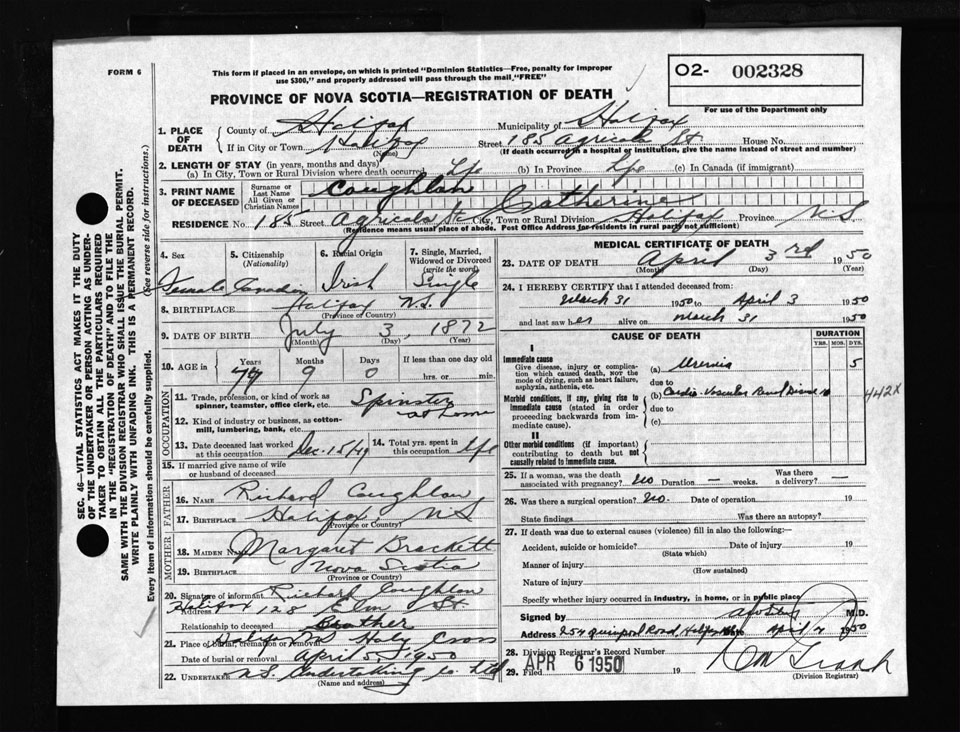 FORM 6
This form if placed in an envelope, on which is printed "Dominion Statistics—Free, penalty for improper
use $300," and properly addressed will pass through the mail, "FREE"
O2- 002328
For use of the Department only
PROVINCE OF NOVA SCOTIA—REGISTRATION OF DEATH
1. PLACE OF DEATH
County of Halifax Municipality of Halifax
If in City or Town Halifax Street 185 Agricola St House No.
(Name) (If death occurred in a hospital or institution, give the name instead of street and number)
2. LENGTH OF STAY (in years, months and days)
(a) In City, Town or Rural Division where death occurred Life (b) In Province Life (c) In Canada (if immigrant)
3. PRINT NAME OF DECEASED
Surname or Last Name Coughlan
All Given or Christian Names Catherine
RESIDENCE No. 185 Street Agricola St City, Town or Rural Division Halifax Province N S
(Residence means usual place of abode. Post Office Address for residents in rural parts not sufficient)
4. Sex Female
5. Citizenship (Nationality) Canadian
6. Racial Origin Irish
7. Single, Married, Widowed or Divorced (write the word) Single
8. BIRTHPLACE Halifax N.S.
(Province or Country)
9. DATE OF BIRTH July 3, 1872
(Month) (Day) (Year)
10. AGE in Years 77 Months 9 Days 0 If less than one day old hrs. or min.
OCCUPATION
11. Trade, profession, or kind of work as spinner, teamster, office clerk, etc. Spinster
at home
12. Kind of industry or business, as cotton-mill, lumbering, bank, etc.
13. Date deceased last worked at this occupation Dec-15/49
14. Total yrs. spent in this occupation life
15. If married give name of wife or husband of deceased
FATHER
16. NAME Richard Coughlan
17. BIRTHPLACE Halifax N S
(Province or Country)
MOTHER
18. MAIDEN NAME Margaret Brackett
19. BIRTHPLACE Nova Scotia
(Province or Country)
20. Signature of informant Richard Coughlan
Address Halifax 128 Elm St.
Relationship to deceased Brother
21. Place of burial, cremation or removal Halifax NS Holy Cross
Date of burial or removal April 5, 1950
22. UNDERTAKER N.S. Undertaking Co Ltd
(Name and address)
MEDICAL CERTIFICATE OF DEATH
23. DATE OF DEATH April 3rd 1950
(Month) (Day) (Year)
24. I HEREBY CERTIFY that I attended deceased from:
March 31 1950 to April 3 1950
and last saw her alive on March 31 1950
CAUSE OF DEATH
DURATION
YRS. MOS. DYS.
I
Immediate cause
Give disease, injury or complication which caused death, NOT the mode of dying, such as heart failure, asphyxia, asthenia, etc.
(a) Uremia 5
due to
Morbid conditions, if any, giving rise to immediate cause (stated in order proceeding backwards from immediate cause).
(b) Cardio-Vascular Renal Disease
442X
due to
(c)
II
Other morbid conditions (if important) contributing to death but not causally related to immediate cause.
25. If a woman, was the death associated with pregnancy? no Duration — weeks. Was there a delivery? —
26. Was there a surgical operation? no. Date of operation 19
State findings Was there an autopsy?
27. If death was due to external causes (violence) fill in also the following:—
Accident, suicide or homicide? Date of injury 19
(State which)
Manner of injury
(How sustained)
Nature of injury
Specify whether injury occurred in industry, in home, or in public place
Signed by M.D.
Address 254 Quinpool Road, Halifax April 1950
28. Division Registrar's Record Number
29. Filed APR 6 1950 19
(Division Registrar)
SEC. 46—VITAL STATISTICS ACT MAKES IT THE DUTY
OF THE UNDERTAKER OR PERSON ACTING AS UNDER-
TAKER TO OBTAIN ALL THE PARTICULARS REQUIRED
IN THE "REGISTRATION OF DEATH" AND TO FILE THE
SAME WITH THE DIVISION REGISTRAR WHO SHALL ISSUE THE BURIAL PERMIT.
WRITE PLAINLY WITH UNFADING INK. THIS IS A PERMANENT RECORD.
Every item of information should be carefully supplied. (See reverse side for instructions.)